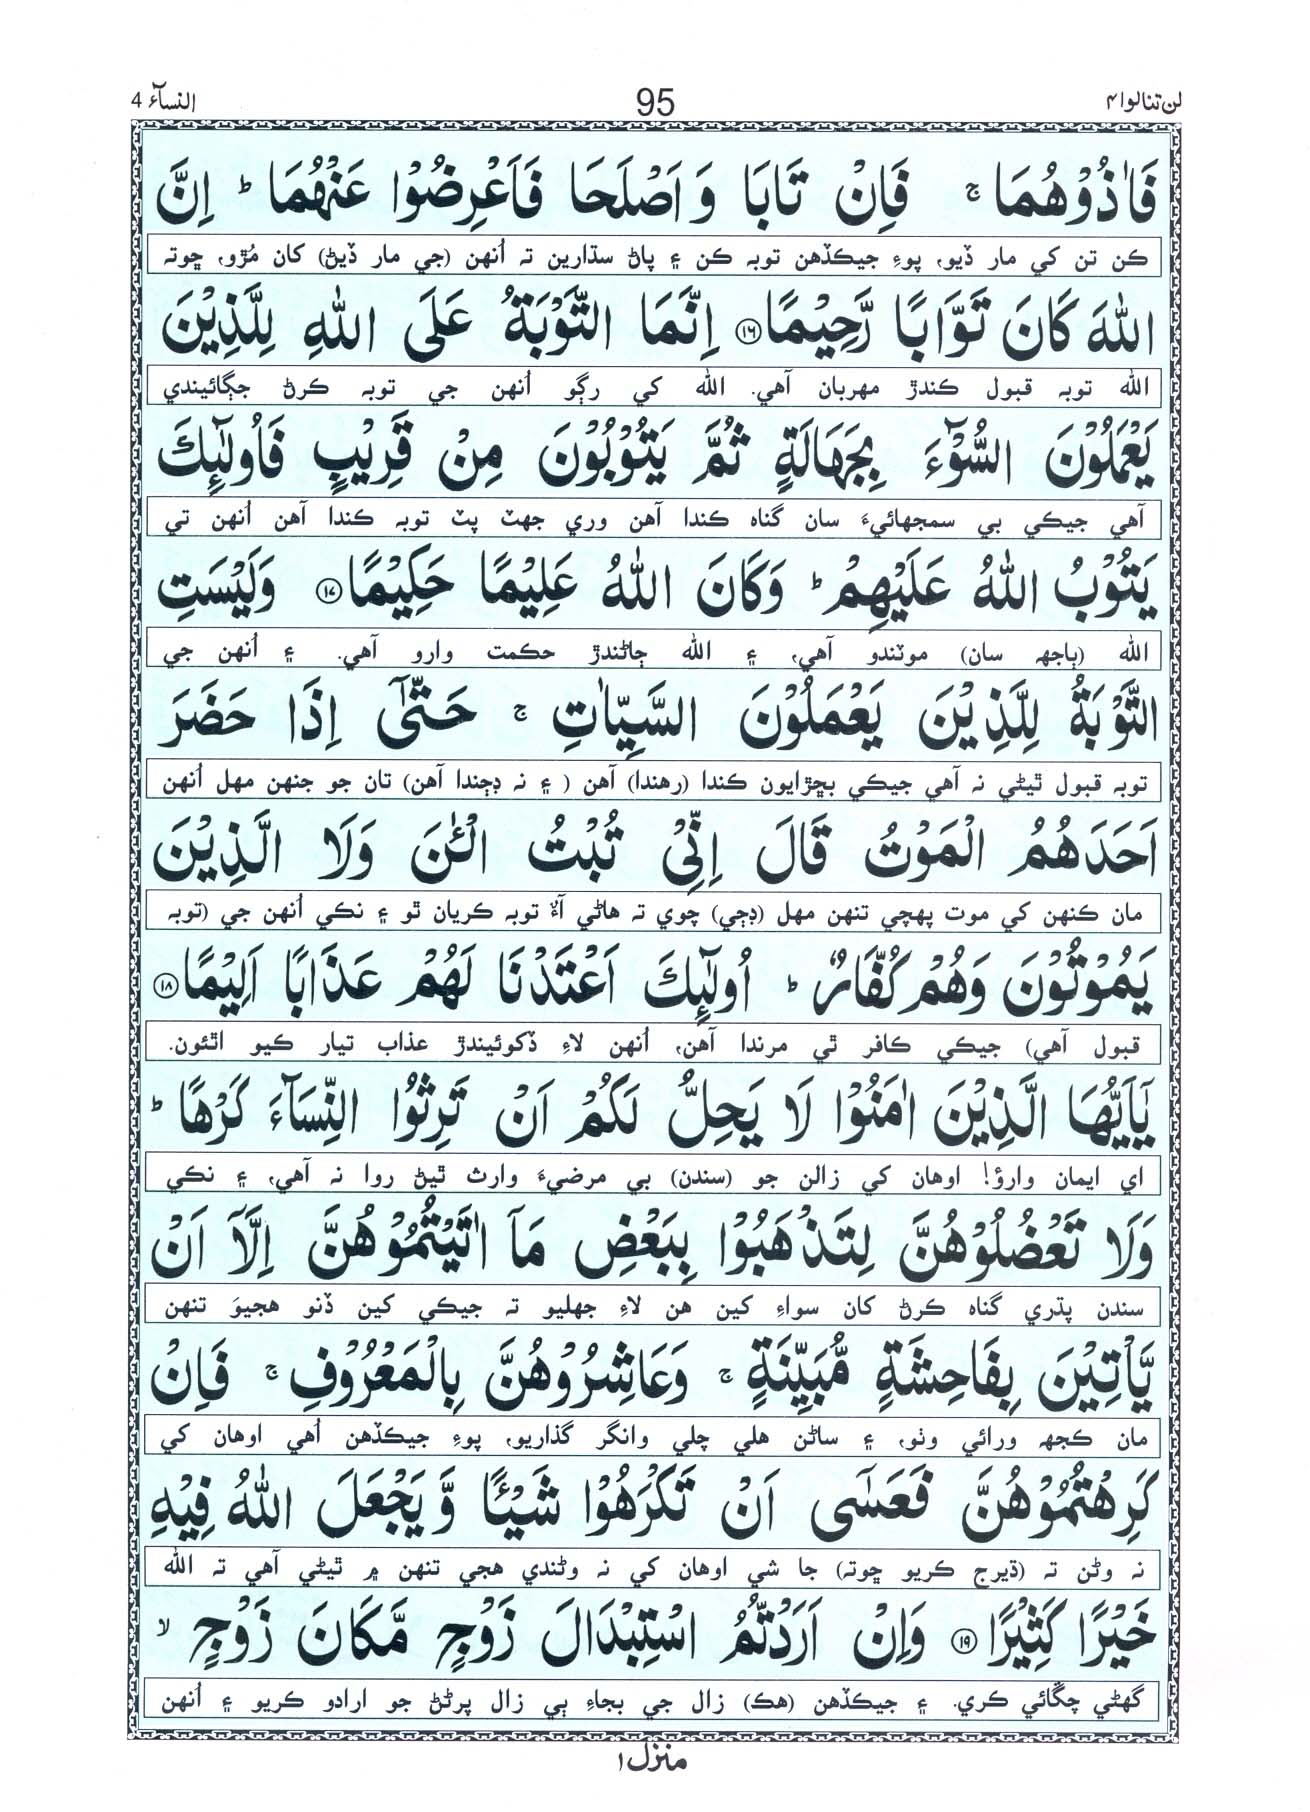 لن تنالوا ۴
95
النسآء 4
فَاٰذُوْهُمَا ۚ فَاِنْ تَابَا وَ اَصْلَحَا فَاَعْرِضُوْا عَنْهُمَا ؕ اِنَّ
ڪن تن کي مار ڏيو، پوءِ جيڪڏهن توبہ ڪن ۽ پاڻ سڌارين تہ اُنهن (جي مار ڏيڻ) کان مُڙو، ڇوتہ
اللّٰهَ كَانَ تَوَّابًا رَّحِيْمًا ﴿۱۶﴾ اِنَّمَا التَّوْبَةُ عَلَى اللّٰهِ لِلَّذِيْنَ
الله توبہ قبول ڪندڙ مهربان آهي. الله کي رڳو اُنهن جي توبہ ڪرڻ جڳائيندي
يَعْمَلُوْنَ السُّوْٓءَ بِجَهَالَةٍ ثُمَّ يَتُوْبُوْنَ مِنْ قَرِيْبٍ فَاُولٰٓئِكَ
آهي جيڪي بي سمجهائيءَ سان گناه ڪندا آهن وري جهٽ پٽ توبہ ڪندا آهن اُنهن تي
يَتُوْبُ اللّٰهُ عَلَيْهِمْ ؕ وَكَانَ اللّٰهُ عَلِيْمًا حَكِيْمًا ﴿۱۷﴾ وَلَيْسَتِ
الله (ٻاجهہ سان) موٽندو آهي، ۽ الله ڄاڻندڙ حڪمت وارو آهي. ۽ اُنهن جي
التَّوْبَةُ لِلَّذِيْنَ يَعْمَلُوْنَ السَّيِّاٰتِ ۚ حَتّٰٓى اِذَا حَضَرَ
توبہ قبول ٿيڻي نہ آهي جيڪي بڇڙايون ڪندا (رهندا) آهن ( ۽ نہ ڊڄندا آهن) تان جو جنهن مهل اُنهن
اَحَدَهُمُ الْمَوْتُ قَالَ اِنِّىْ تُبْتُ الْـٰٔنَ وَلَا الَّذِيْنَ
مان ڪنهن کي موت پهچي تنهن مهل (ڊڄي) چوي تہ هاڻي آءٌ توبہ ڪريان ٿو ۽ نڪي اُنهن جي (توبہ
يَمُوْتُوْنَ وَهُمْ كُفَّارٌ ؕ اُولٰٓئِكَ اَعْتَدْنَا لَهُمْ عَذَابًا اَلِيْمًا ﴿۱۸﴾
قبول آهي) جيڪي ڪافر ٿي مرندا آهن، اُنهن لاءِ ڏکوئيندڙ عذاب تيار ڪيو اٿئون.
يٰٓاَيُّهَا الَّذِيْنَ اٰمَنُوْا لَا يَحِلُّ لَكُمْ اَنْ تَرِثُوا النِّسَآءَ كَرْهًا ؕ
اي ايمان وارؤ! اوهان کي زالن جو (سندن) بي مرضيءَ وارث ٿيڻ روا نہ آهي، ۽ نڪي
وَلَا تَعْضُلُوْهُنَّ لِتَذْهَبُوْا بِبَعْضِ مَآ اٰتَيْتُمُوْهُنَّ اِلَّآ اَنْ
سندن پڌري گناه ڪرڻ کان سواءِ کين هن لاءِ جهليو تہ جيڪي کين ڏنو هجيوَ تنهن
يَّاْتِيْنَ بِفَاحِشَةٍ مُّبَيِّنَةٍ ۚ وَعَاشِرُوْهُنَّ بِالْمَعْرُوْفِ ۚ فَاِنْ
مان ڪجهہ ورائي وٺو، ۽ ساڻن هلي چلي وانگر گذاريو، پوءِ جيڪڏهن اُهي اوهان کي
كَرِهْتُمُوْهُنَّ فَعَسٰٓى اَنْ تَكْرَهُوْا شَيْـًٔا وَّ يَجْعَلَ اللّٰهُ فِيْهِ
نہ وڻن تہ (ڌيرج ڪريو ڇوتہ) جا شي اوهان کي نہ وڻندي هجي تنهن ۾ ٿيڻي آهي تہ الله
خَيْرًا كَثِيْرًا ﴿۱۹﴾ وَاِنْ اَرَدْتُّمُ اسْتِبْدَالَ زَوْجٍ مَّكَانَ زَوْجٍ ۙ
گهڻي چڱائي ڪري. ۽ جيڪڏهن (هڪ) زال جي بجاءِ ٻي زال پرڻڻ جو ارادو ڪريو ۽ اُنهن
منزل ۱